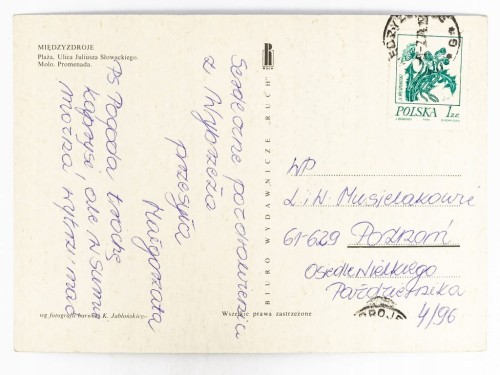 MIĘDZYZDROJE
Plaża. Ulica Juliusza Słowackiego.
Molo. Promenada.
Serdeczne pozdrowienia
z Wybrzeża
przesyła
Małgorzata
PS Pogoda trochę
kaprysi, ale w sumie
można wytrzymać
wg fotografii barwnej K. Jabłońskiego
Wszelkie prawa zastrzeżone
BIURO WYDAWNICZE "RUCH"
POLSKA 1 ZŁ
WP
L. i H. Musielakowie
61-629 Poznań
Osiedle Wielkiego
Października
4/96